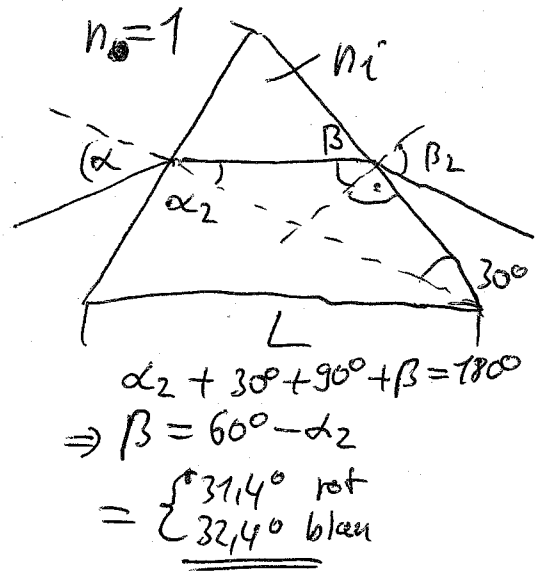 n₀=1
nᵢ
α
α₂
β
β₂
30°
L
α₂ + 30° + 90° + β = 180°
⇒ β = 60° - α₂
= { 31,4° rot
32,4° blau